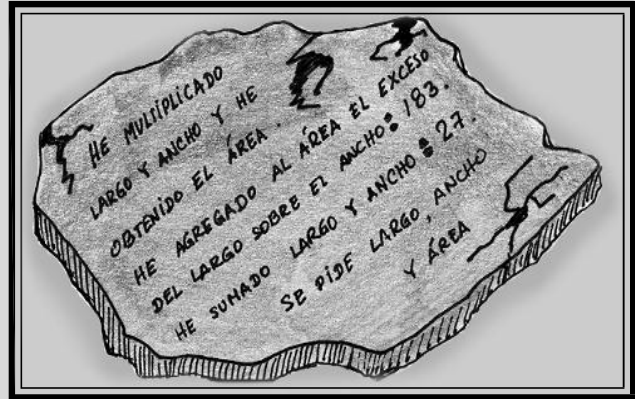 HE MULTIPLICADO
LARGO Y ANCHO Y HE
OBTENIDO EL ÁREA.
HE AGREGADO AL ÁREA EL EXCESO
DEL LARGO SOBRE EL ANCHO: 183.
HE SUMADO LARGO Y ANCHO: 27.
SE PIDE LARGO, ANCHO
Y ÁREA